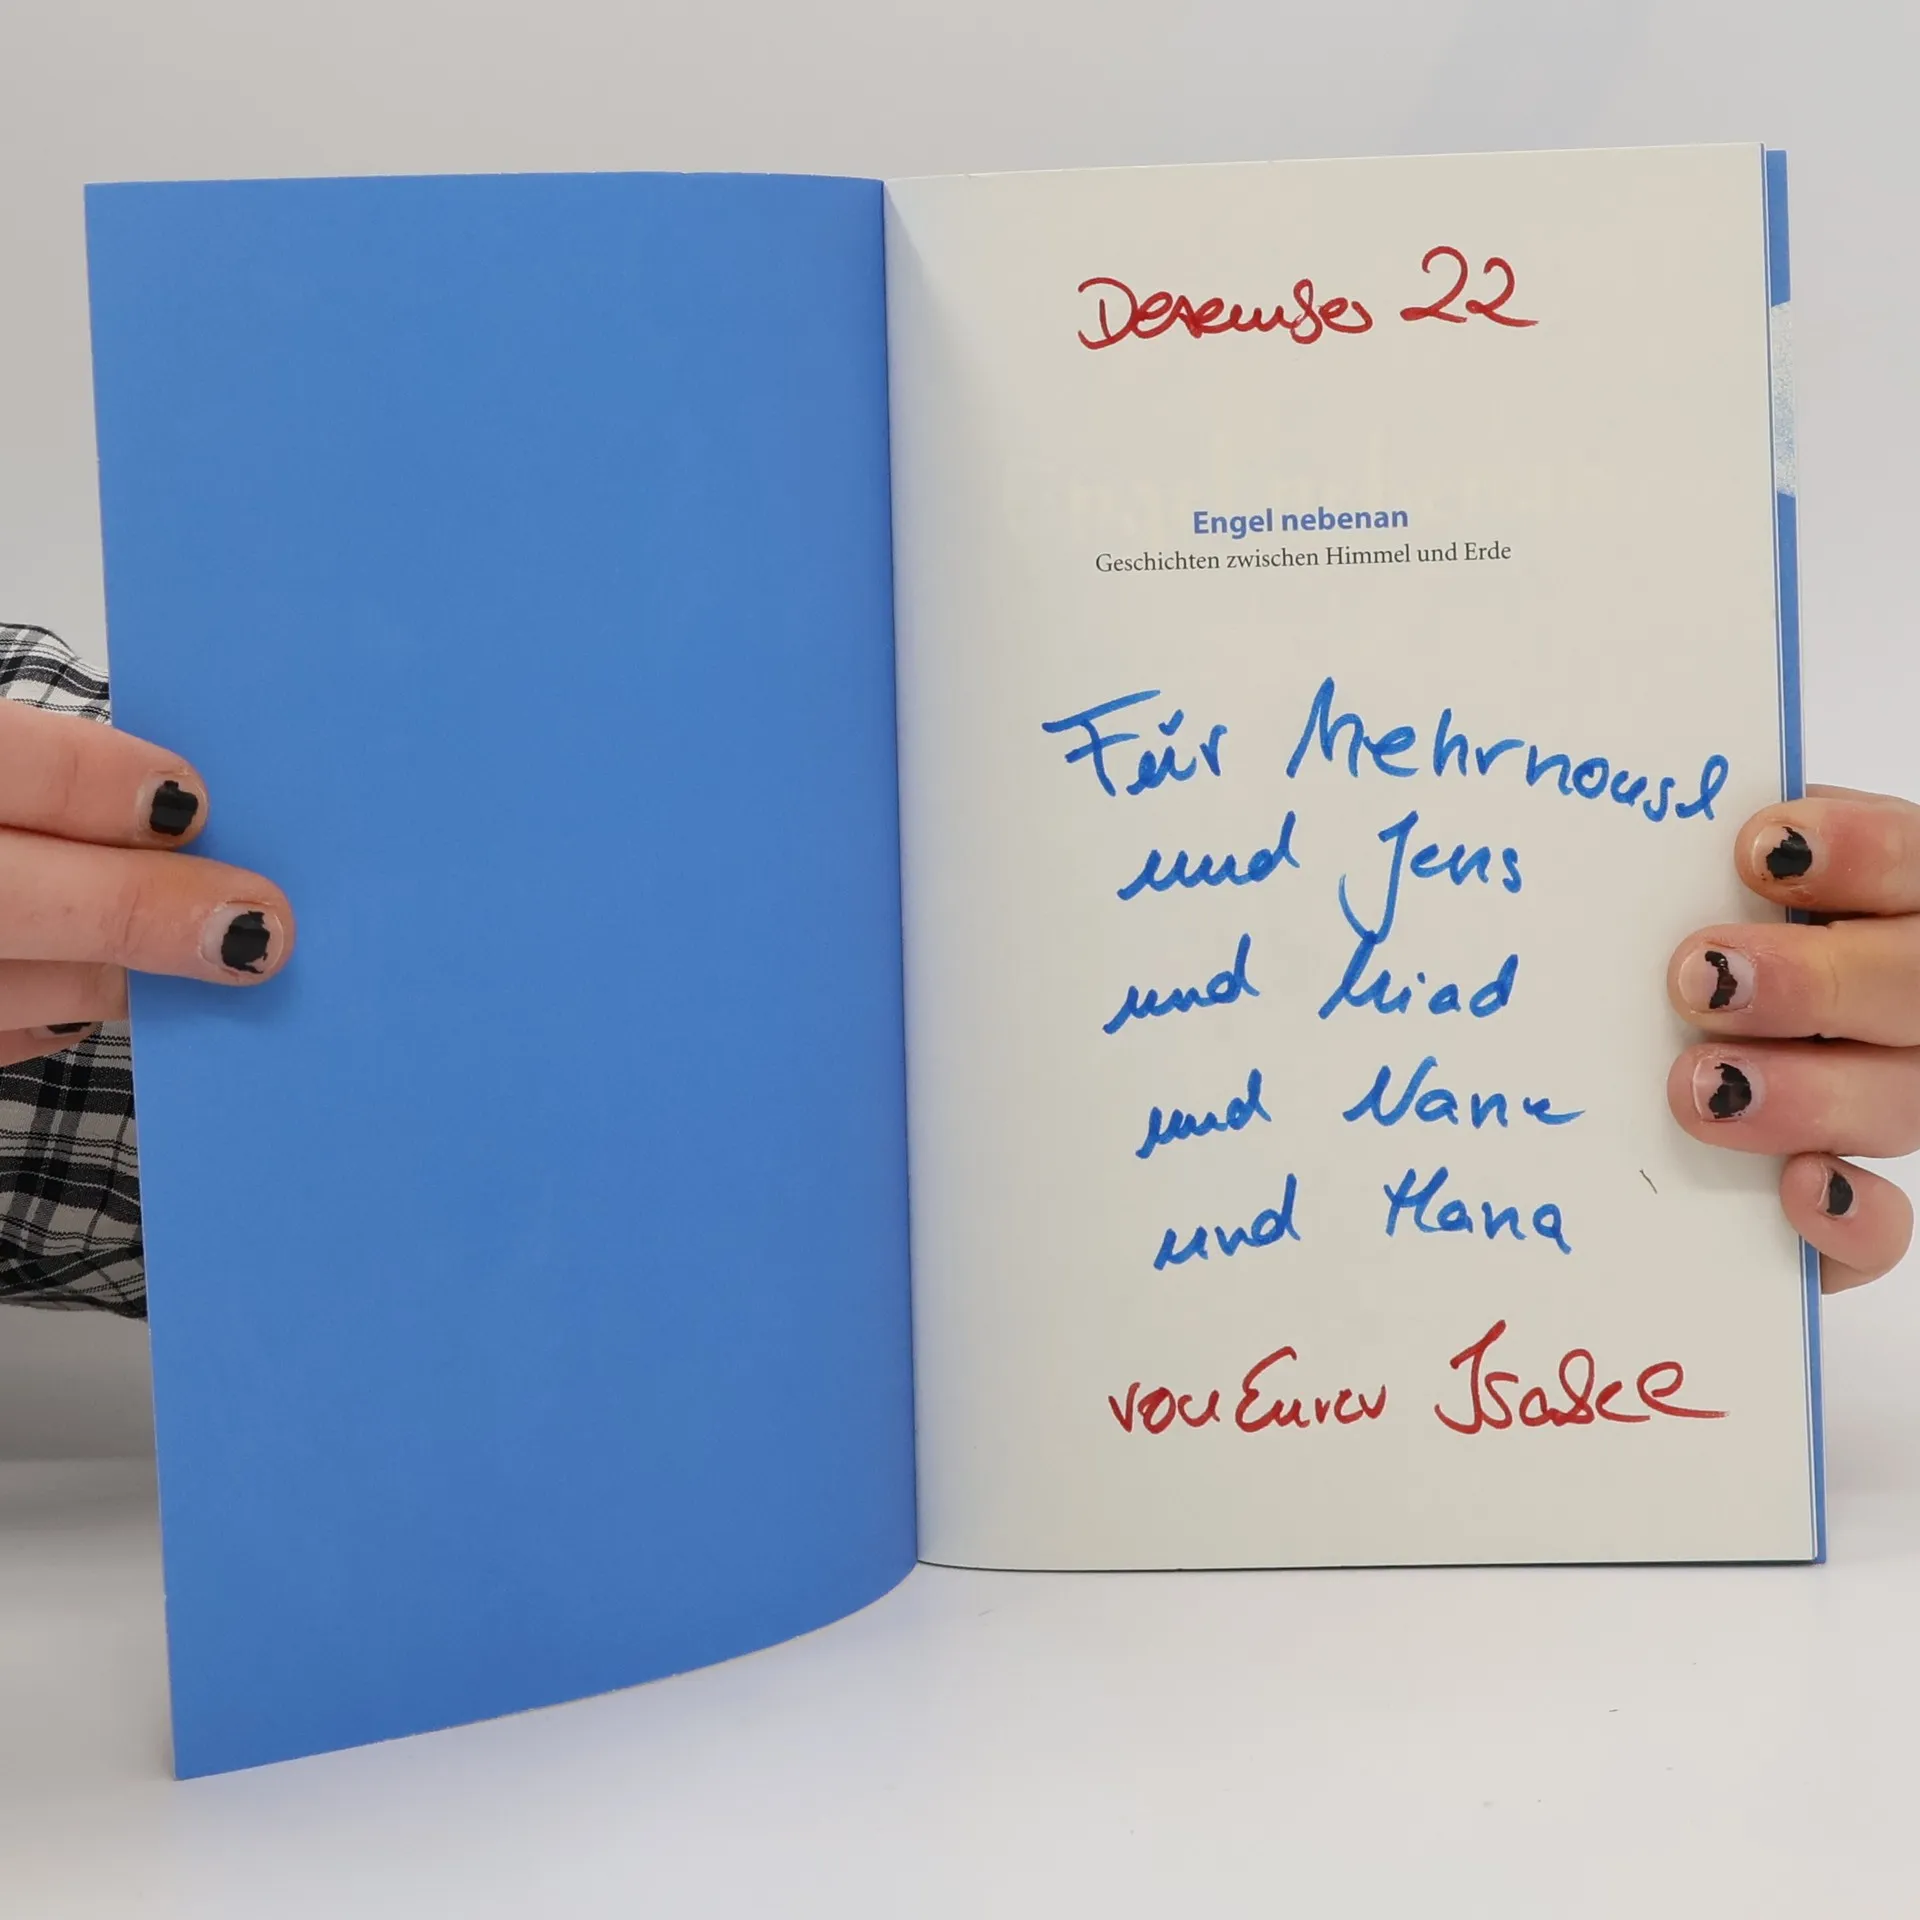 Dezember 22
Engel nebenan
Geschichten zwischen Himmel und Erde
Für Mehrnoush
und Jens
und Miad
und Nane
und Hana
von Eurer Isabel